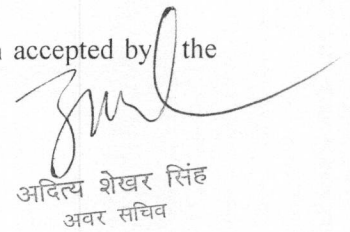 accepted by the
अदित्य शेखर सिंह
अवर सचिव